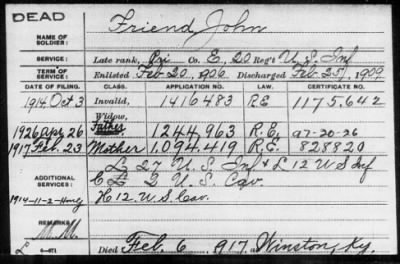 DEAD
NAME OF SOLDIER: Friend, John
SERVICE: Late rank, Pri Co. E, 20 Reg't U.S. Inf
TERM OF SERVICE: Enlisted Feb 20, 1906 Discharged Feb 25, 1909
DATE OF FILING. CLASS. APPLICATION NO. CERTIFICATE NO.
1914 Oct 3 Invalid, 1416483 R.E. 1175.642
Widow,
1926 Apr 26 Father 1244,963 R.E. 97-20-26
1917 Feb. 23 Mother 1,094.419 R.E. 828820
ADDITIONAL SERVICES: L 27 U.S. Inf & L 12 U S Inf
2 U.S. Cav.
1914-11-2- H 12. U.S. Cav.
REMARKS:
Died Feb. 6, 1917, Winston, Ky.